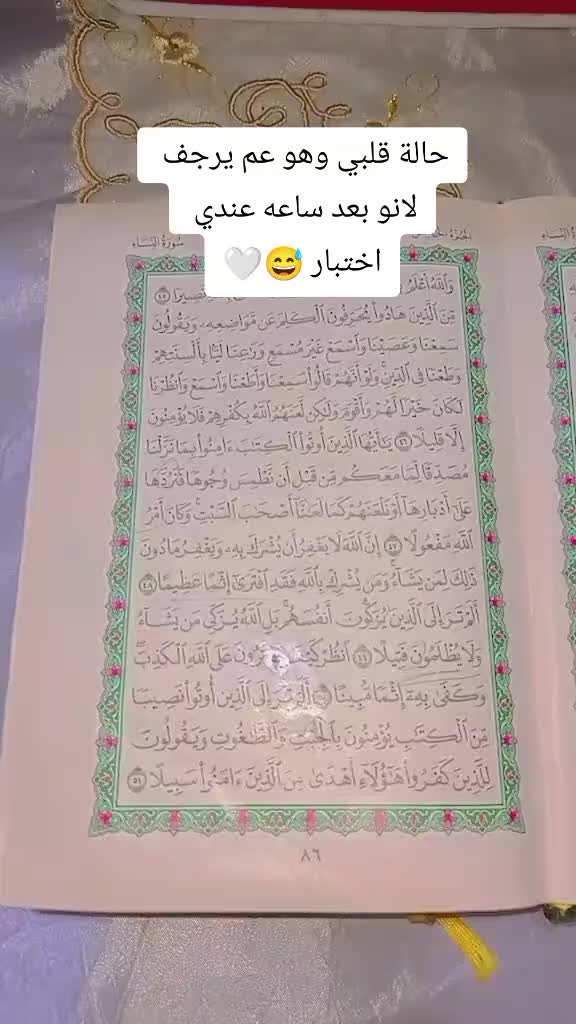 حالة قلبي وهو عم يرجف
لانو بعد ساعه عندي
اختبار 😅🤍
سُورَةُ النِّسَاءِ
وَاللَّهُ أَعْلَمُ نَصِيرًا ﴿٤٥﴾
مِّنَ الَّذِينَ هَادُوا يُحَرِّفُونَ الْكَلِمَ عَن مَّوَاضِعِهِ وَيَقُولُونَ
سَمِعْنَا وَعَصَيْنَا وَاسْمَعْ غَيْرَ مُسْمَعٍ وَرَاعِنَا لَيًّا بِأَلْسِنَتِهِمْ
وَطَعْنًا فِي الدِّينِ وَلَوْ أَنَّهُمْ قَالُوا سَمِعْنَا وَأَطَعْنَا وَاسْمَعْ وَانظُرْنَا
لَكَانَ خَيْرًا لَّهُمْ وَأَقْوَمَ وَلَٰكِن لَّعَنَهُمُ اللَّهُ بِكُفْرِهِمْ فَلَا يُؤْمِنُونَ
إِلَّا قَلِيلًا ﴿٤٦﴾ يَا أَيُّهَا الَّذِينَ أُوتُوا الْكِتَابَ ءَامِنُوا بِمَا نَزَّلْنَا
مُصَدِّقًا لِّمَا مَعَكُم مِّن قَبْلِ أَن نَّطْمِسَ وُجُوهًا فَنَرُدَّهَا
عَلَىٰ أَدْبَارِهَا أَوْ نَلْعَنَهُمْ كَمَا لَعَنَّا أَصْحَابَ السَّبْتِ وَكَانَ أَمْرُ
اللَّهِ مَفْعُولًا ﴿٤٧﴾ إِنَّ اللَّهَ لَا يَغْفِرُ أَن يُشْرَكَ بِهِ وَيَغْفِرُ مَا دُونَ
ذَٰلِكَ لِمَن يَشَاءُ وَمَن يُشْرِكْ بِاللَّهِ فَقَدِ افْتَرَىٰ إِثْمًا عَظِيمًا ﴿٤٨﴾
أَلَمْ تَرَ إِلَى الَّذِينَ يُزَكُّونَ أَنفُسَهُم بَلِ اللَّهُ يُزَكِّي مَن يَشَاءُ
وَلَا يُظْلَمُونَ فَتِيلًا ﴿٤٩﴾ انظُرْ كَيْفَ يَفْتَرُونَ عَلَى اللَّهِ الْكَذِبَ
وَكَفَىٰ بِهِ إِثْمًا مُّبِينًا ﴿٥٠﴾ أَلَمْ تَرَ إِلَى الَّذِينَ أُوتُوا نَصِيبًا
مِّنَ الْكِتَابِ يُؤْمِنُونَ بِالْجِبْتِ وَالطَّاغُوتِ وَيَقُولُونَ
لِلَّذِينَ كَفَرُوا هَٰؤُلَاءِ أَهْدَىٰ مِنَ الَّذِينَ ءَامَنُوا سَبِيلًا ﴿٥١﴾
٨٦